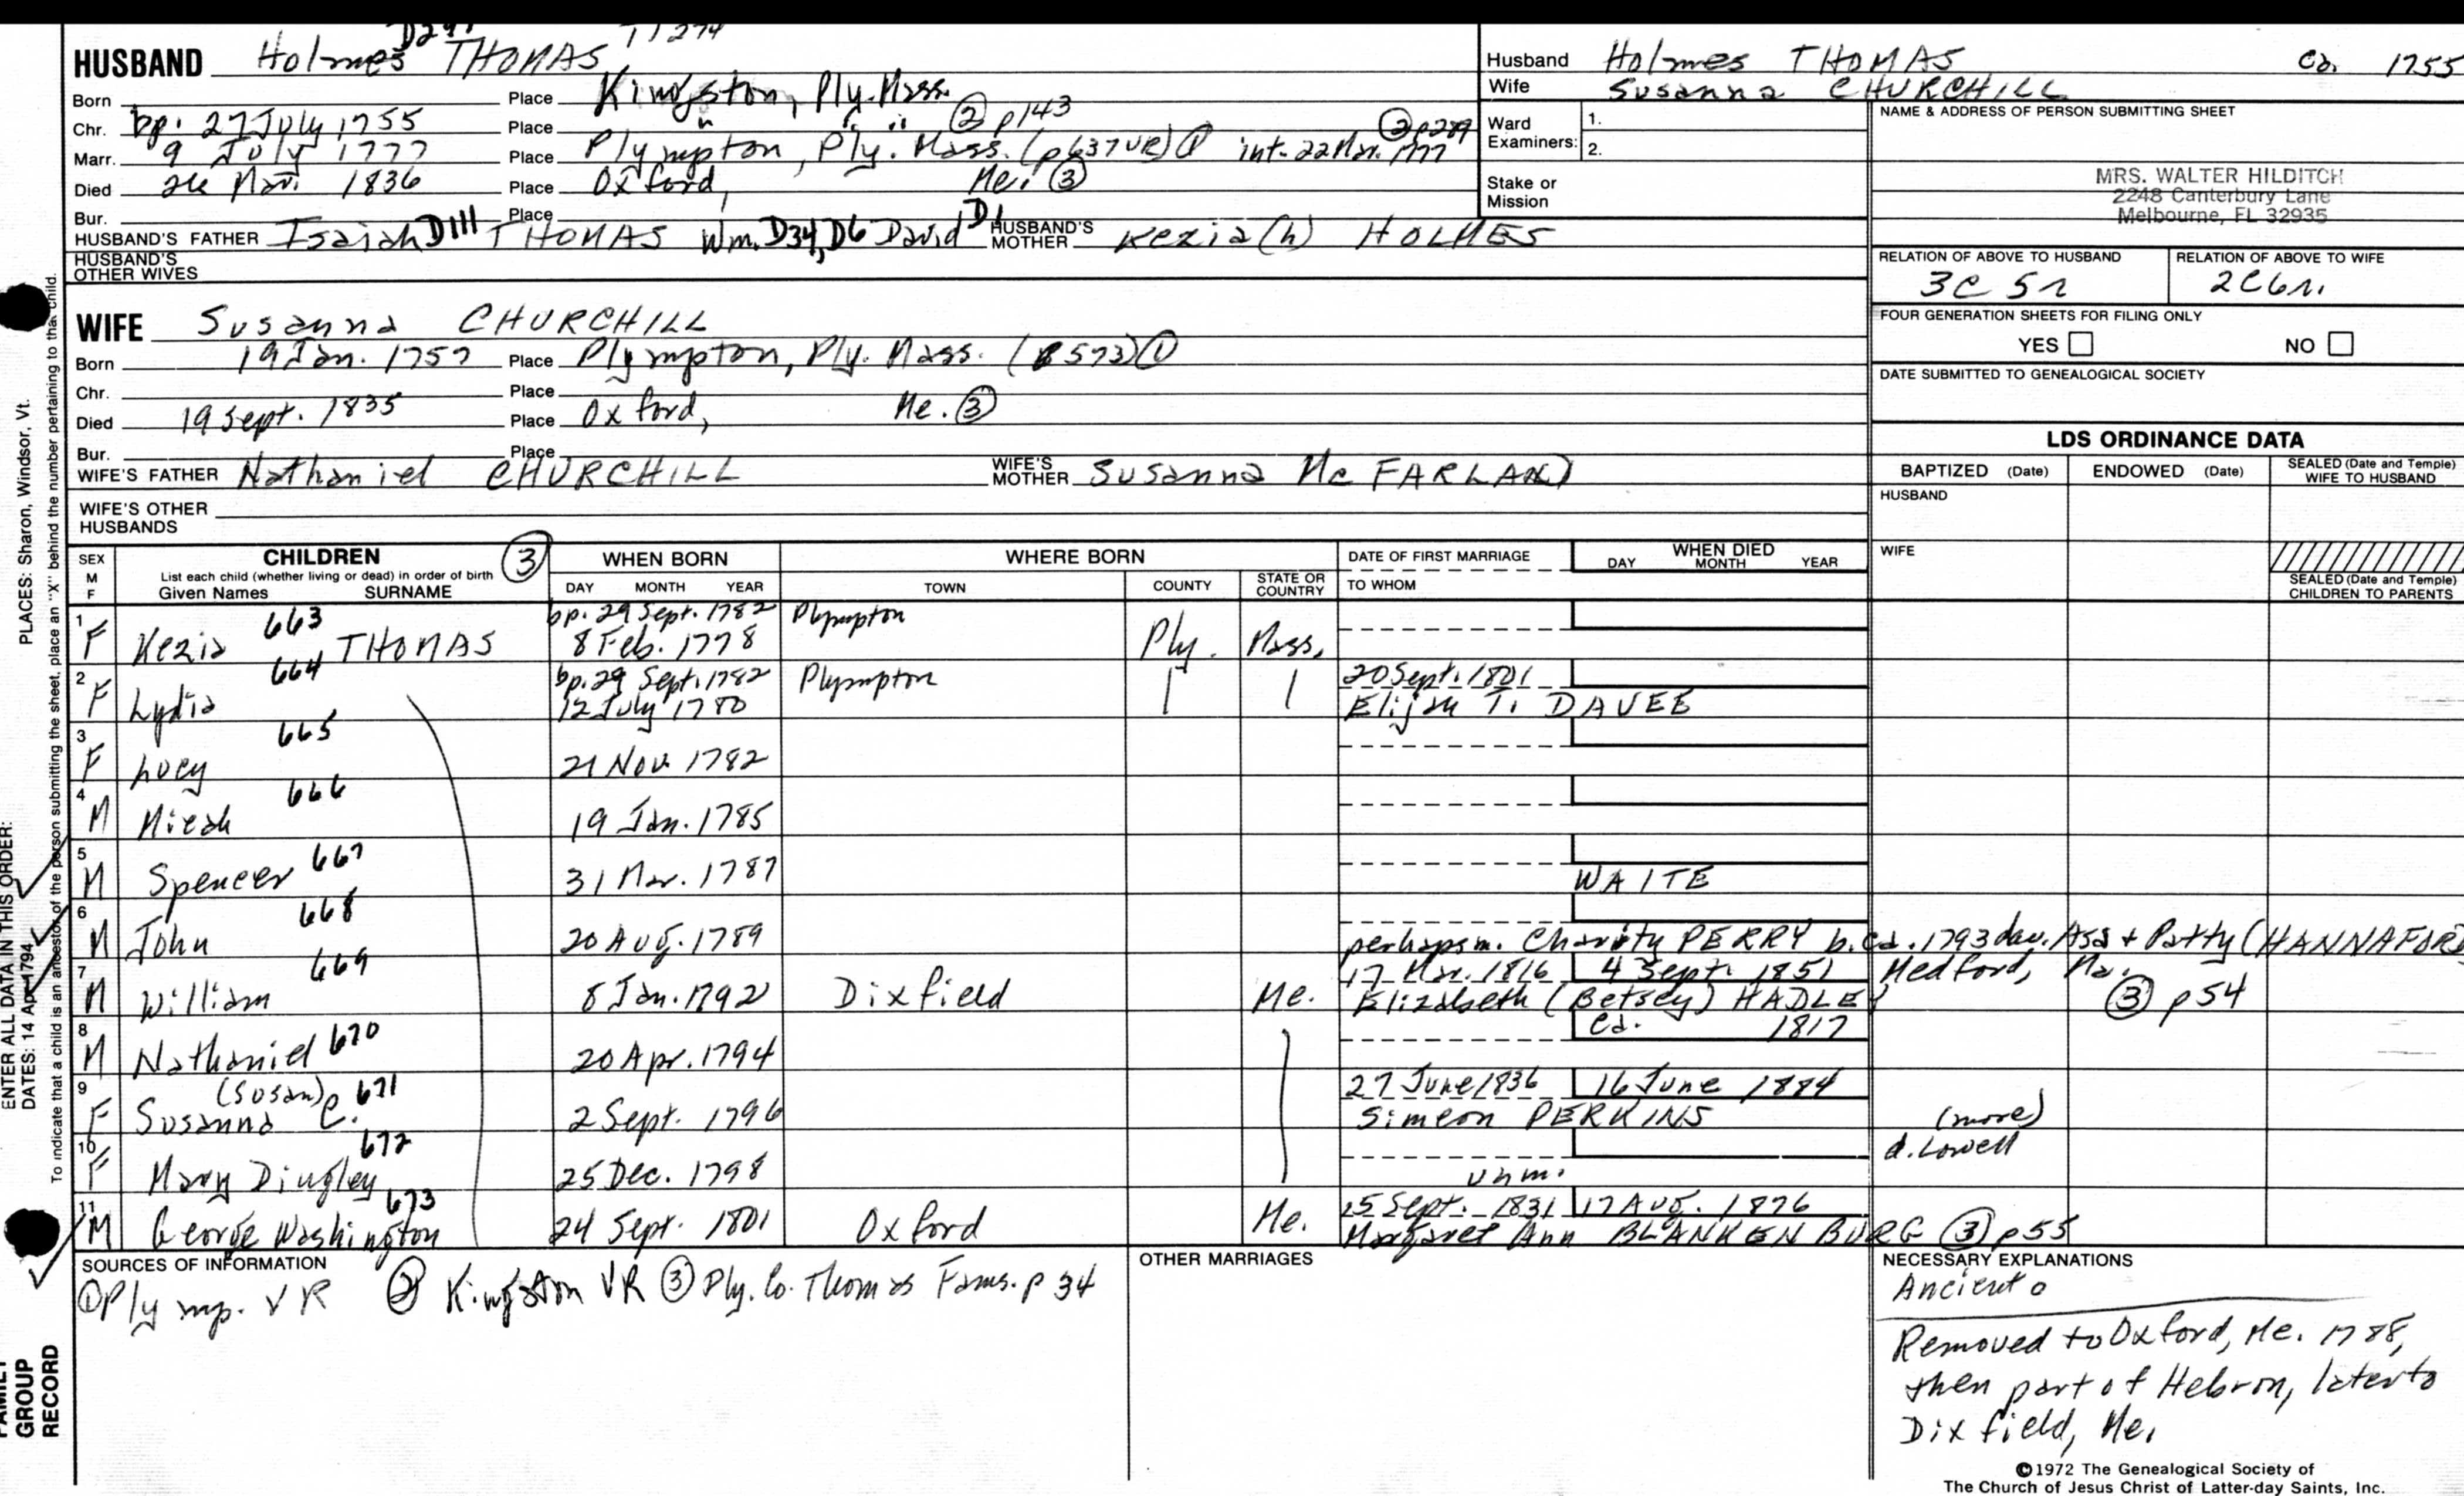 D297 T1274
HUSBAND Holmes THOMAS
Born Place Kingston, Ply. Mass.
Chr. bp. 27 July 1755 Place " " " ② p143
Marr. 9 July 1777 Place Plympton, Ply. Mass. (p637VR) ① int-22Mar. 1777 ② p289
Died 26 Nov. 1836 Place Oxford, Me. ③
Bur. Place
HUSBAND'S FATHER Isaiah D111 THOMAS Wm. D34, D6 David D1 HUSBAND'S MOTHER Kezia(h) HOLMES
HUSBAND'S OTHER WIVES
Husband Holmes THOMAS Ca. 1755
Wife Susanna CHURCHILL
Ward Examiners: 1.
2.
Stake or Mission
NAME & ADDRESS OF PERSON SUBMITTING SHEET
MRS. WALTER HILDITCH
2248 Canterbury Lane
Melbourne, FL 32935
RELATION OF ABOVE TO HUSBAND RELATION OF ABOVE TO WIFE
3C 5r 2C6r.
FOUR GENERATION SHEETS FOR FILING ONLY
YES NO
DATE SUBMITTED TO GENEALOGICAL SOCIETY
WIFE Susanna CHURCHILL
Born 19 Jan. 1757 Place Plympton, Ply. Mass. (p573) ①
Chr. Place
Died 19 Sept. 1835 Place Oxford, Me. ③
Bur. Place
WIFE'S FATHER Nathaniel CHURCHILL WIFE'S MOTHER Susanna McFARLAND
WIFE'S OTHER HUSBANDS
LDS ORDINANCE DATA
BAPTIZED (Date) ENDOWED (Date) SEALED (Date and Temple) WIFE TO HUSBAND
HUSBAND
WIFE
SEALED (Date and Temple) CHILDREN TO PARENTS
SEX M F CHILDREN ③ WHEN BORN WHERE BORN DATE OF FIRST MARRIAGE WHEN DIED
List each child (whether living or dead) in order of birth
Given Names SURNAME DAY MONTH YEAR TOWN COUNTY STATE OR COUNTRY TO WHOM DAY MONTH YEAR
1 663 bp. 29 Sept. 1782 Plympton
F Kezia THOMAS 8 Feb. 1778 Ply. Mass.
2 664 bp. 29 Sept. 1782 Plympton 20 Sept. 1801
F Lydia 12 July 1780 Elijah T. DAVEE
3 665
F Lucy 21 Nov. 1782
4 666
M Micah 19 Jan. 1785
5 667
M Spencer 31 Mar. 1787 WAITE
6 668
M John 20 Aug. 1789 perhaps m. Charity PERRY b.ca. 1793 dau. Asa + Patty (HANNAFORD
7 669 17 Mar. 1816 4 Sept. 1851 Medford, Ma.
M William 8 Jan. 1792 Dixfield Me. Elizabeth (Betsey) HADLEY ③ p54
8 670 ca. 1817
M Nathaniel 20 Apr. 1794
9 (Susan) 671 27 June 1836 16 June 1884
F Susanna C. 2 Sept. 1796 Simeon PERKINS (more)
10 672 d. Lowell
F Mary Dingley 25 Dec. 1798 unm.
11 673 15 Sept. 1831 17 Aug. 1876
M George Washington 24 Sept. 1801 Oxford Me. Margaret Ann BLANKENBURG ③ p55
SOURCES OF INFORMATION
① Plymp. VR ② Kingston VR ③ Ply. Co. Thomas Fams. p 34
OTHER MARRIAGES
NECESSARY EXPLANATIONS
Ancient
Removed to Oxford, Me. 1788,
then part of Hebron, later to
Dixfield, Me.
©1972 The Genealogical Society of
The Church of Jesus Christ of Latter-day Saints, Inc.
ENTER ALL DATA IN THIS ORDER:
PLACES: Sharon, Windsor, Vt.
DATES: 14 Apr 1794
To indicate that a child is an ancestor of the person submitting the sheet, place an "X" behind the number pertaining to that child.
FAMILY
GROUP
RECORD